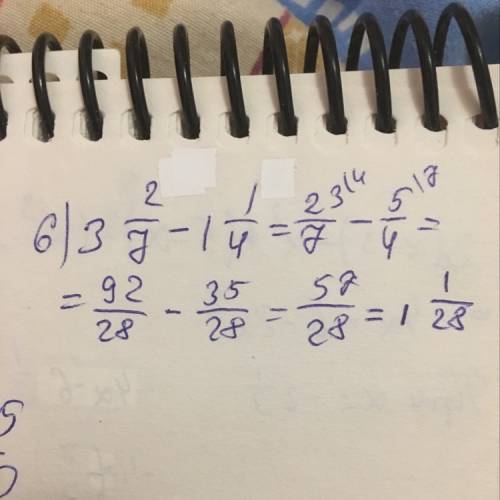 6) 3 2/7 - 1 1/4 = 23/7 \4 - 5/4 \7 =
= 92/28 - 35/28 = 57/28 = 1 1/28
5